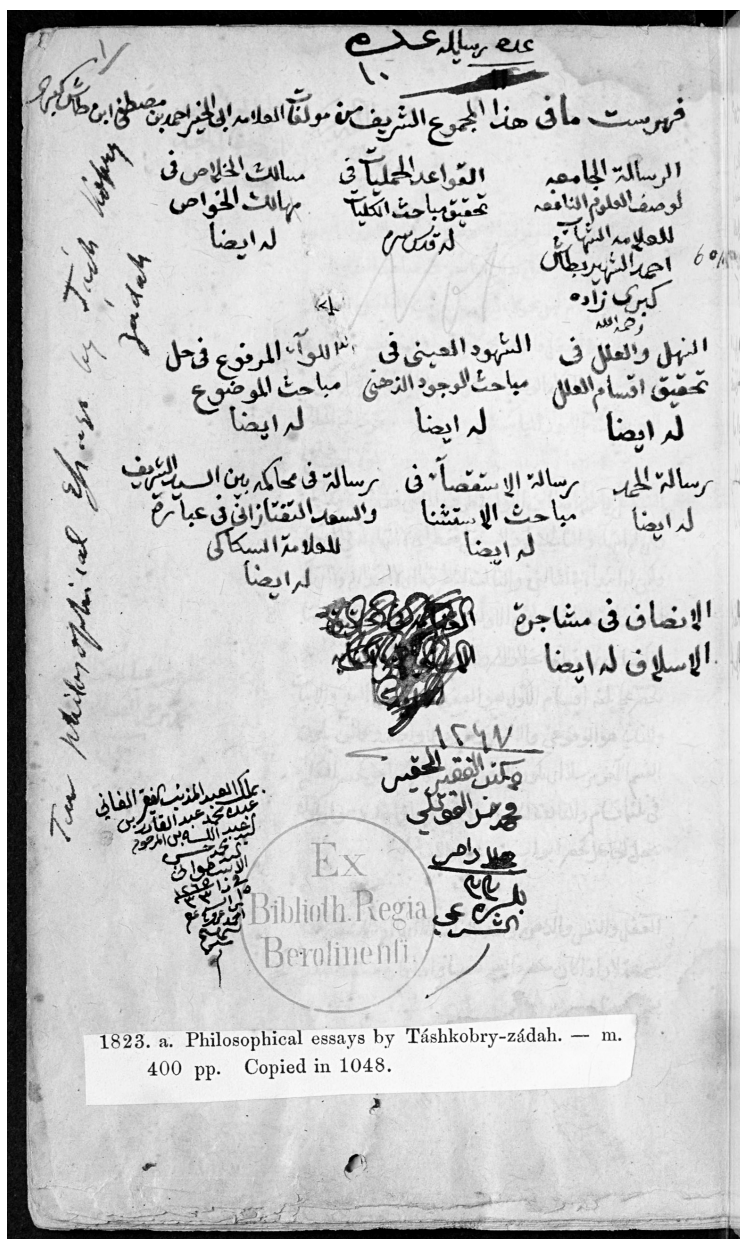 عدة رسايله عدد
١٠
فهرست ما فى هذا المجموع الشريف من مولفات العلامه ابى الخير احمد بن مصطفى ابن طاش كبرى
الرسالة الجامعه
لوصف العلوم النافعه
للعلامه
احمد الشهير بطاش
كبرى زاده
رحمه الله
القواعد الحمليات فى
تحقيق مباحث الكليات
له قدس سره
مسالك الخلاص فى
مهالك الخواص
له ايضا
النهل والعلل فى
تحقيق اقسام العلل
له ايضا
الشهود العينى فى
مباحث الوجود الذهنى
له ايضا
اللوآ المرفوع فى حل
مباحث الموضوع
له ايضا
رسالة الحمد
له ايضا
رسالة الاستقصآ فى
مباحث الاستثنا
له ايضا
رسالة فى محاكمه بين السيد الشريف
والسعد التفتازانى فى عبارة
للعلامة السكاكى
له ايضا
الانصاف فى مشاجرة
الاسلاف له ايضا
١٢٦٧
الفقير الحقير
بملك العبد المذنب الفقير الفانى
محمد عبد القادر بن
عبد الله بن المرحوم
الاسطوانى
Ten philosophical Essays by Tásh köpry
zadah
Ex
Biblioth. Regia
Berolinenſi.
1823. a. Philosophical essays by Táshkobry-zádah. — m.
400 pp. Copied in 1048.